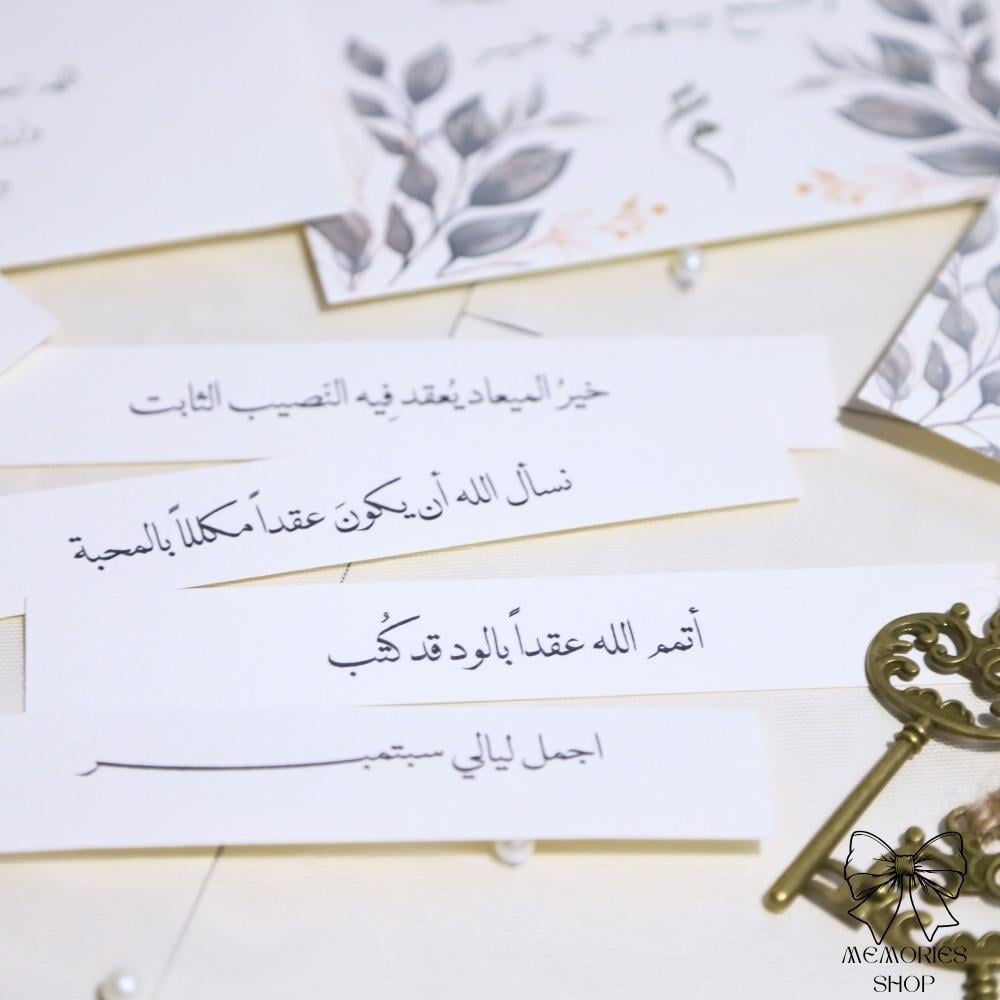 في خير
خيرُ الميعاد يُعقد فِيه النَصيب الثابت
نسأل الله أن يكونَ عقداً مكللاً بالمحبة
أتمم الله عقداً بالود قد كُتب
اجمل ليالي سبتمبر
MEMORIES
SHOP